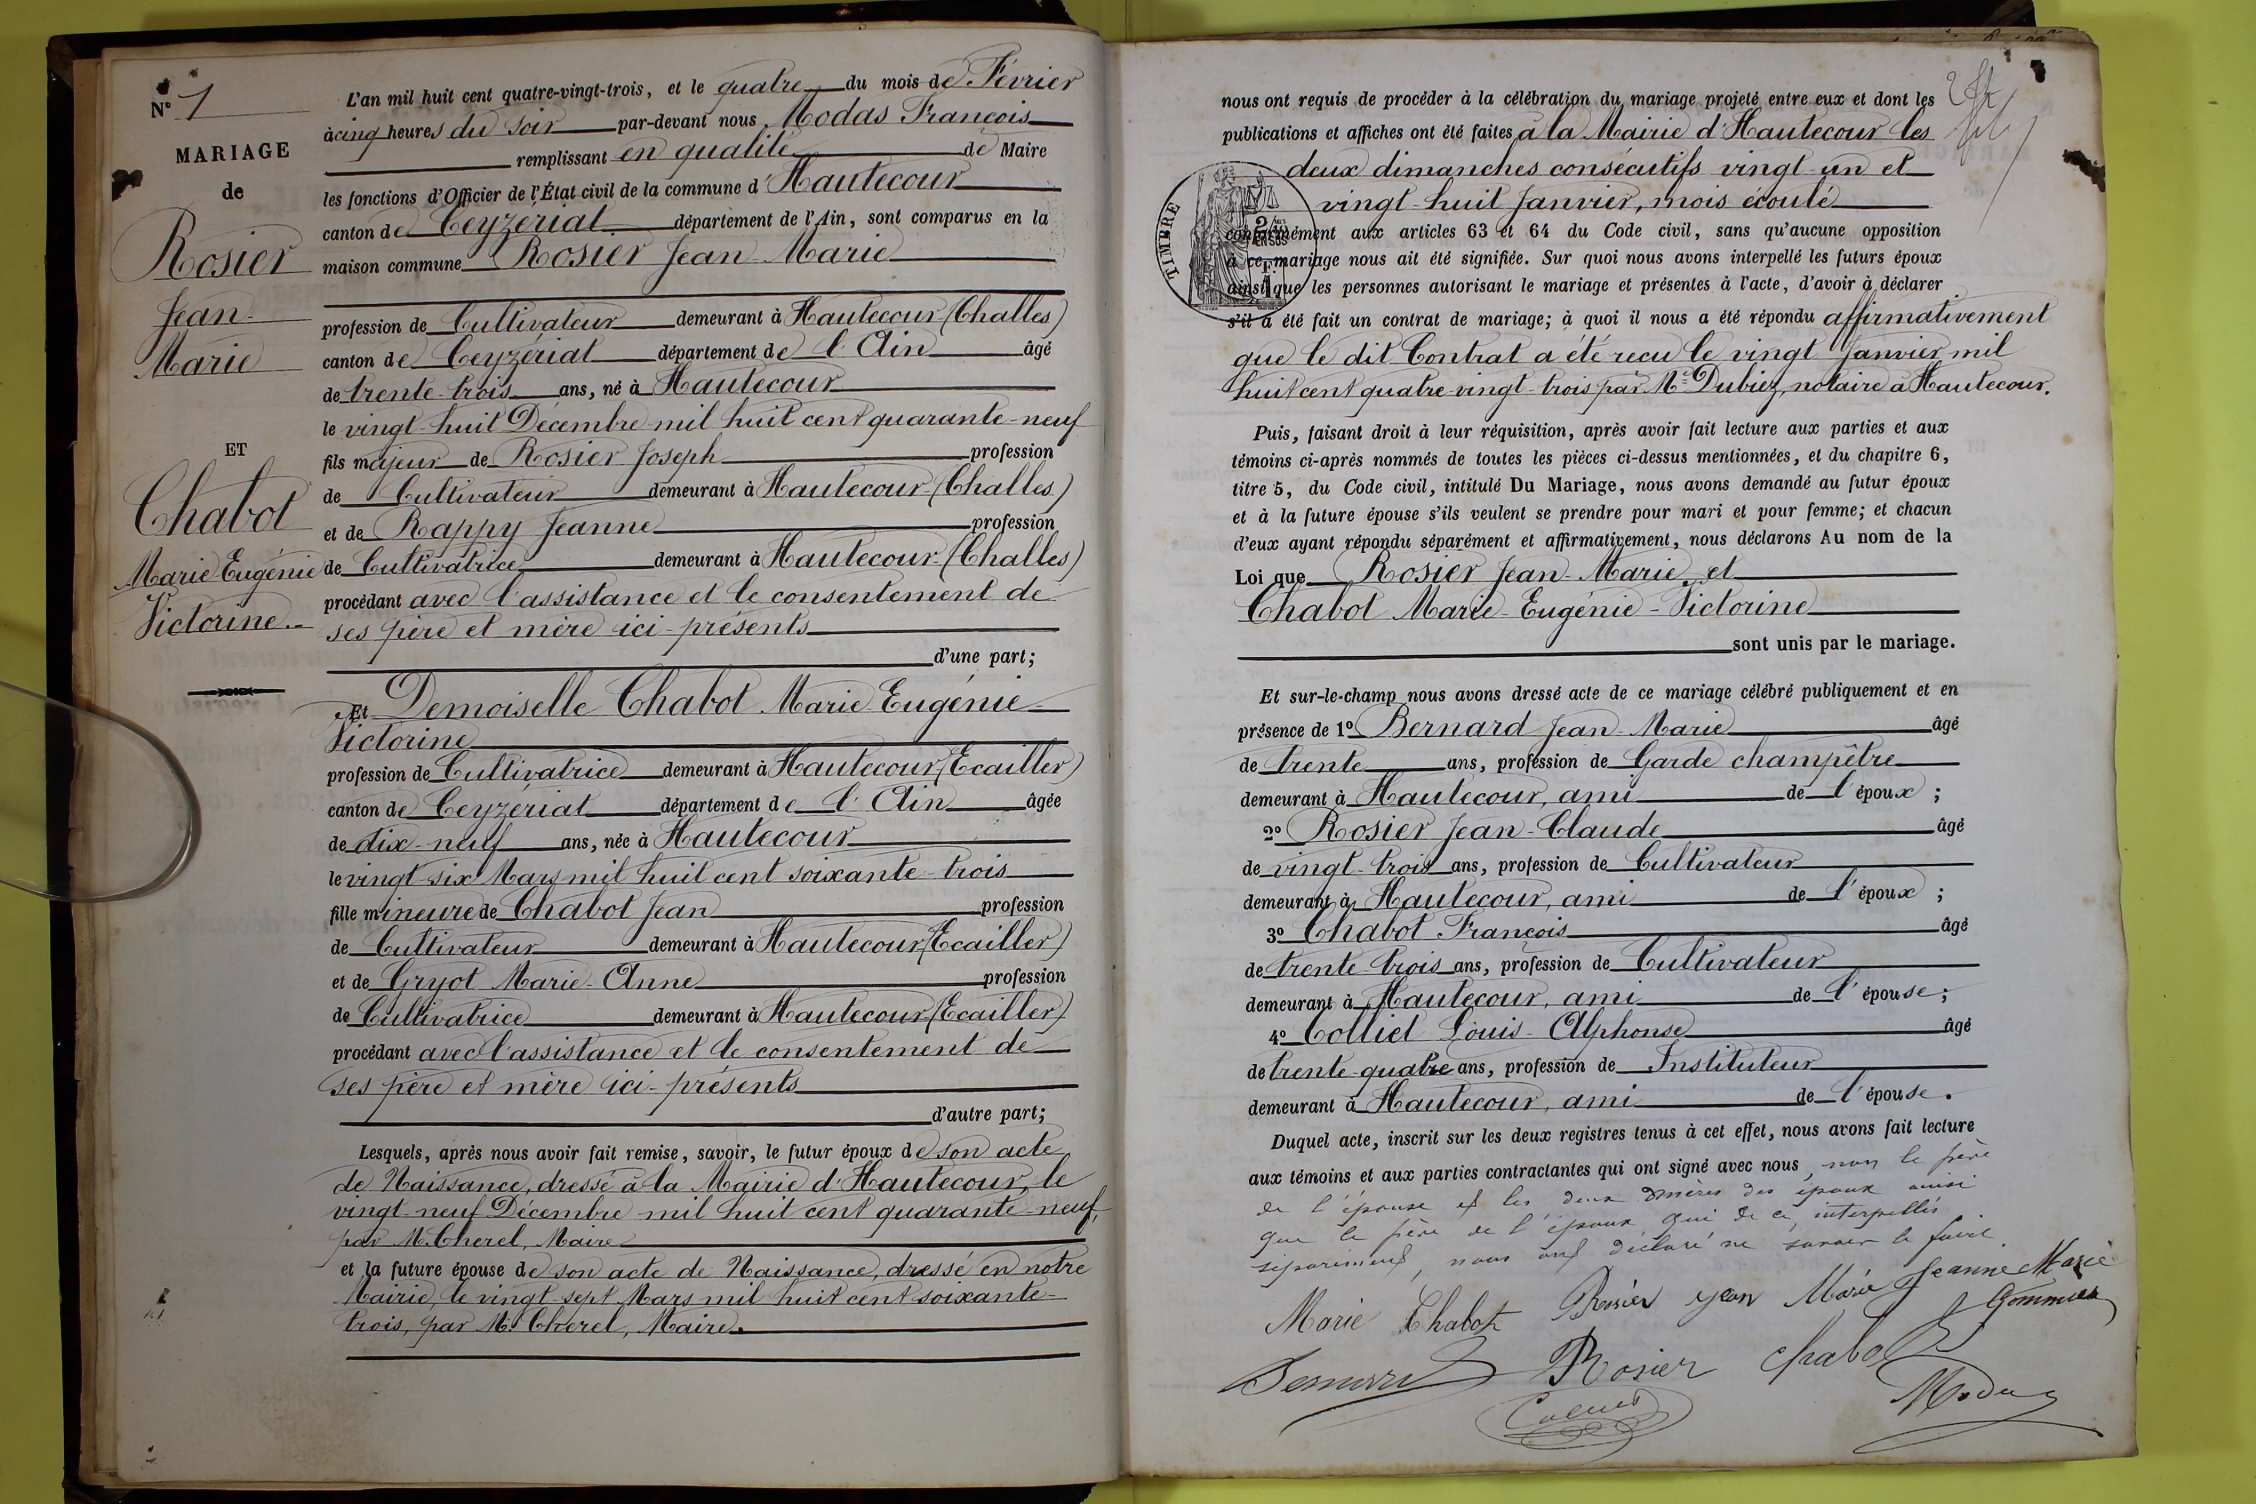 N° 1
MARIAGE
de
Rosier
Jean-
Marie
ET
Chabot
Marie-Eugénie
Victorine.-
L'an mil huit cent quatre-vingt-trois, et le quatre du mois de Février
à cinq heures du soir par-devant nous Modas François
remplissant en qualité de Maire
les fonctions d'Officier de l'État civil de la commune d'Hautecour
canton de Ceyzériat département de l'Ain, sont comparus en la
maison commune Rosier Jean-Marie
profession de Cultivateur demeurant à Hautecour (Challes)
canton de Ceyzériat département de l'Ain âgé
de trente-trois ans, né à Hautecour
le vingt-huit Décembre mil huit cent quarante-neuf
fils majeur de Rosier Joseph profession
de Cultivateur demeurant à Hautecour (Challes)
et de Rappy Jeanne profession
de Cultivatrice demeurant à Hautecour (Challes)
procédant avec l'assistance et le consentement de
ses père et mère ici-présents
d'une part;
Et Demoiselle Chabot Marie-Eugénie-
Victorine
profession de Cultivatrice demeurant à Hautecour (Ecailler)
canton de Ceyzériat département de l'Ain âgée
de dix-neuf ans, née à Hautecour
le vingt-six Mars mil huit cent soixante-trois
fille mineure de Chabot Jean profession
de Cultivateur demeurant à Hautecour (Ecailler)
et de Gryot Marie-Anne profession
de Cultivatrice demeurant à Hautecour (Ecailler)
procédant avec l'assistance et le consentement de
ses père et mère ici-présents
d'autre part;
Lesquels, après nous avoir fait remise, savoir, le futur époux de son acte
de Naissance, dressé à la Mairie d'Hautecour, le
vingt-neuf Décembre mil huit cent quarante-neuf,
par M. Cherel, Maire
et la future épouse de son acte de Naissance, dressé en notre
Mairie, le vingt-sept Mars mil huit cent soixante-
trois, par M. Cherel, Maire.
nous ont requis de procéder à la célébration du mariage projeté entre eux et dont les
publications et affiches ont été faites à la Mairie d'Hautecour les
deux dimanches consécutifs vingt-un et
vingt-huit Janvier, mois écoulé
TIMBRE
conformément aux articles 63 et 64 du Code civil, sans qu'aucune opposition
à ce mariage nous ait été signifiée. Sur quoi nous avons interpellé les futurs époux
ainsi que les personnes autorisant le mariage et présentes à l'acte, d'avoir à déclarer
s'il a été fait un contrat de mariage; à quoi il nous a été répondu affirmativement
que le dit Contrat a été reçu le vingt Janvier mil
huit cent quatre-vingt-trois par Me Dubiez, notaire à Hautecour.
Puis, faisant droit à leur réquisition, après avoir fait lecture aux parties et aux
témoins ci-après nommés de toutes les pièces ci-dessus mentionnées, et du chapitre 6,
titre 5, du Code civil, intitulé Du Mariage, nous avons demandé au futur époux
et à la future épouse s'ils veulent se prendre pour mari et pour femme; et chacun
d'eux ayant répondu séparément et affirmativement, nous déclarons Au nom de la
Loi que Rosier Jean-Marie et
Chabot Marie-Eugénie-Victorine
sont unis par le mariage.
Et sur-le-champ nous avons dressé acte de ce mariage célébré publiquement et en
présence de 1° Bernard Jean-Marie âgé
de trente ans, profession de Garde champêtre
demeurant à Hautecour, ami de l'époux;
2° Rosier Jean-Claude âgé
de vingt-trois ans, profession de Cultivateur
demeurant à Hautecour, ami de l'époux;
3° Chabot François âgé
de trente-trois ans, profession de Cultivateur
demeurant à Hautecour, ami de l'épouse;
4° Colliet Louis-Alphonse âgé
de trente-quatre ans, profession de Instituteur
demeurant à Hautecour, ami de l'épouse.
Duquel acte, inscrit sur les deux registres tenus à cet effet, nous avons fait lecture
aux témoins et aux parties contractantes qui ont signé avec nous, non le père
de l'épouse et les deux mères des époux ainsi
que le père de l'époux qui de ce, interpellés
séparément, nous ont déclaré ne savoir le faire.
Marie Chabot Rosier Jean Marie Jeanne Marie
Bernard Rosier Chabot
Modas